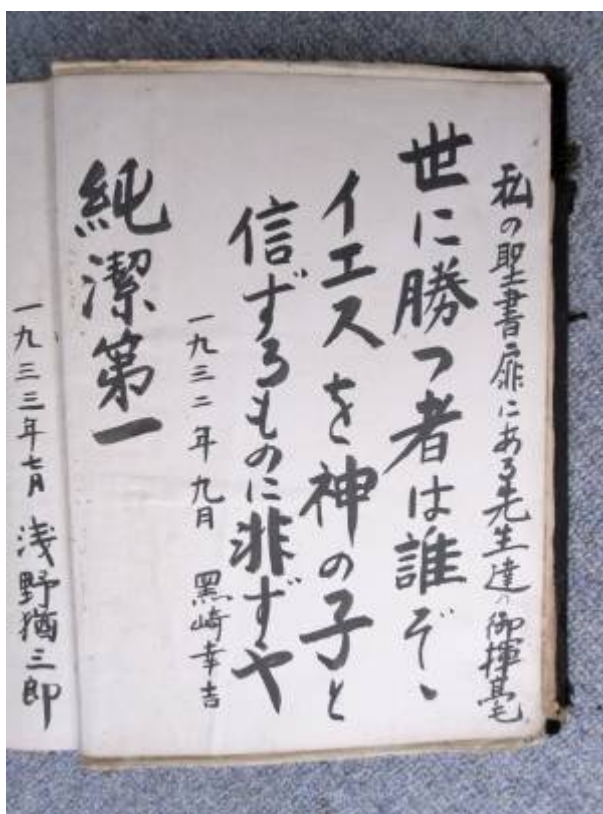 私の聖書扉にある先生達の御揮毫
世に勝つ者は誰ぞ、
イエスを神の子と
信ずるものに非ずや
一九三二年九月 黒崎幸吉
純潔第一
一九三三年七月 浅野猶三郎